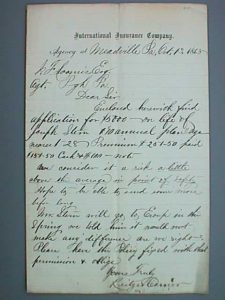 International Insurance Company.
Agency at Meadville Pa, Oct. 13, 186
Esq
Agt. Pgh Pa
Dear Sir
Enclosed herewith find
application for $5000 — on life of
Joseph Stein 10 annual plan. Age
nearest 28 Premium $ 251.50 paid
151.50 Cash & $100 — note
We consider it a risk a little
above the average in point of
Hope to be able to send some more
before long
Mr. Stein will go to Europe in the
Spring, we told him it would not
make any difference are we right —
Please have the Policy fixed with that
permission & oblige
Yours Truly